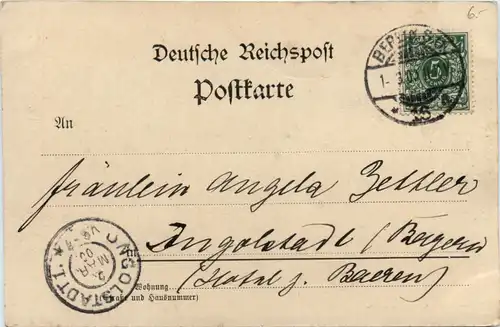 6.-
Deutsche Reichspost
Postkarte
An
BERLIN S.
5
Fräulein Angela Zettler
Ingolstadt (Bayern)
(Hotel z. Baeren)
INGOLSTADT I.
MAR
Wohnung
(Straße und Hausnummer)